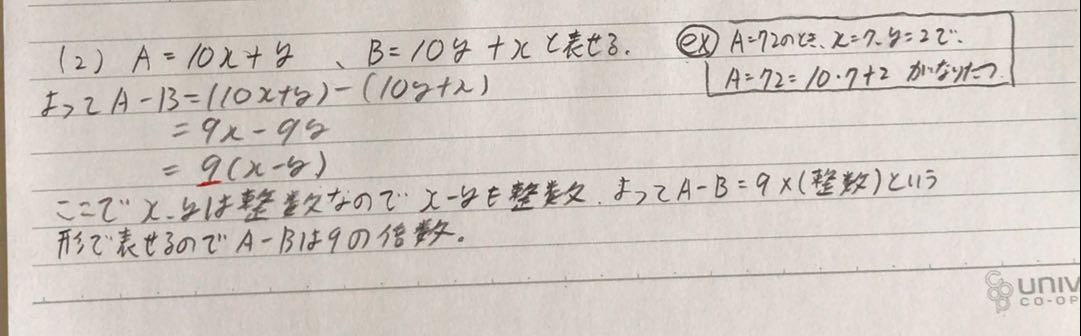 (2) A=10x+y 、B=10y+xと表せる.
ex A=72のとき、x=7、y=2で、
A=72=10・7+2 がなりたつ
よってA-B=(10x+y)-(10y+x)
=9x-9y
=9(x-y)
ここでx、yは整数なのでx-yも整数. よってA-B=9×(整数)という
形で表せるのでA-Bは9の倍数。
UNIV
CO-OP